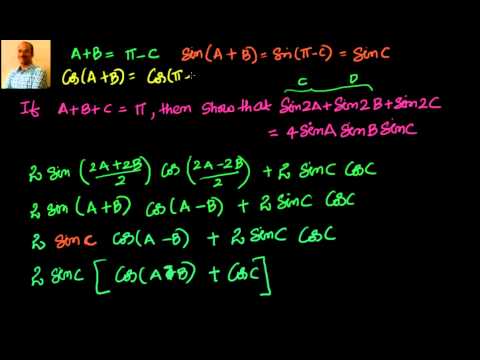 A+B = π-C   Sin(A+B) = Sin(π-C) = Sin C
Cos(A+B) = Cos(π-
C   D
If A+B+C = π, then show that Sin2A + Sin2B + Sin2C
= 4 SinA SinB SinC
2 Sin (2A+2B/2) Cos (2A-2B/2) + 2 SinC CosC
2 Sin (A+B) Cos (A-B) + 2 SinC CosC
2 Sin C Cos (A-B) + 2 SinC CosC
2 SinC [Cos(A-B) + CosC]